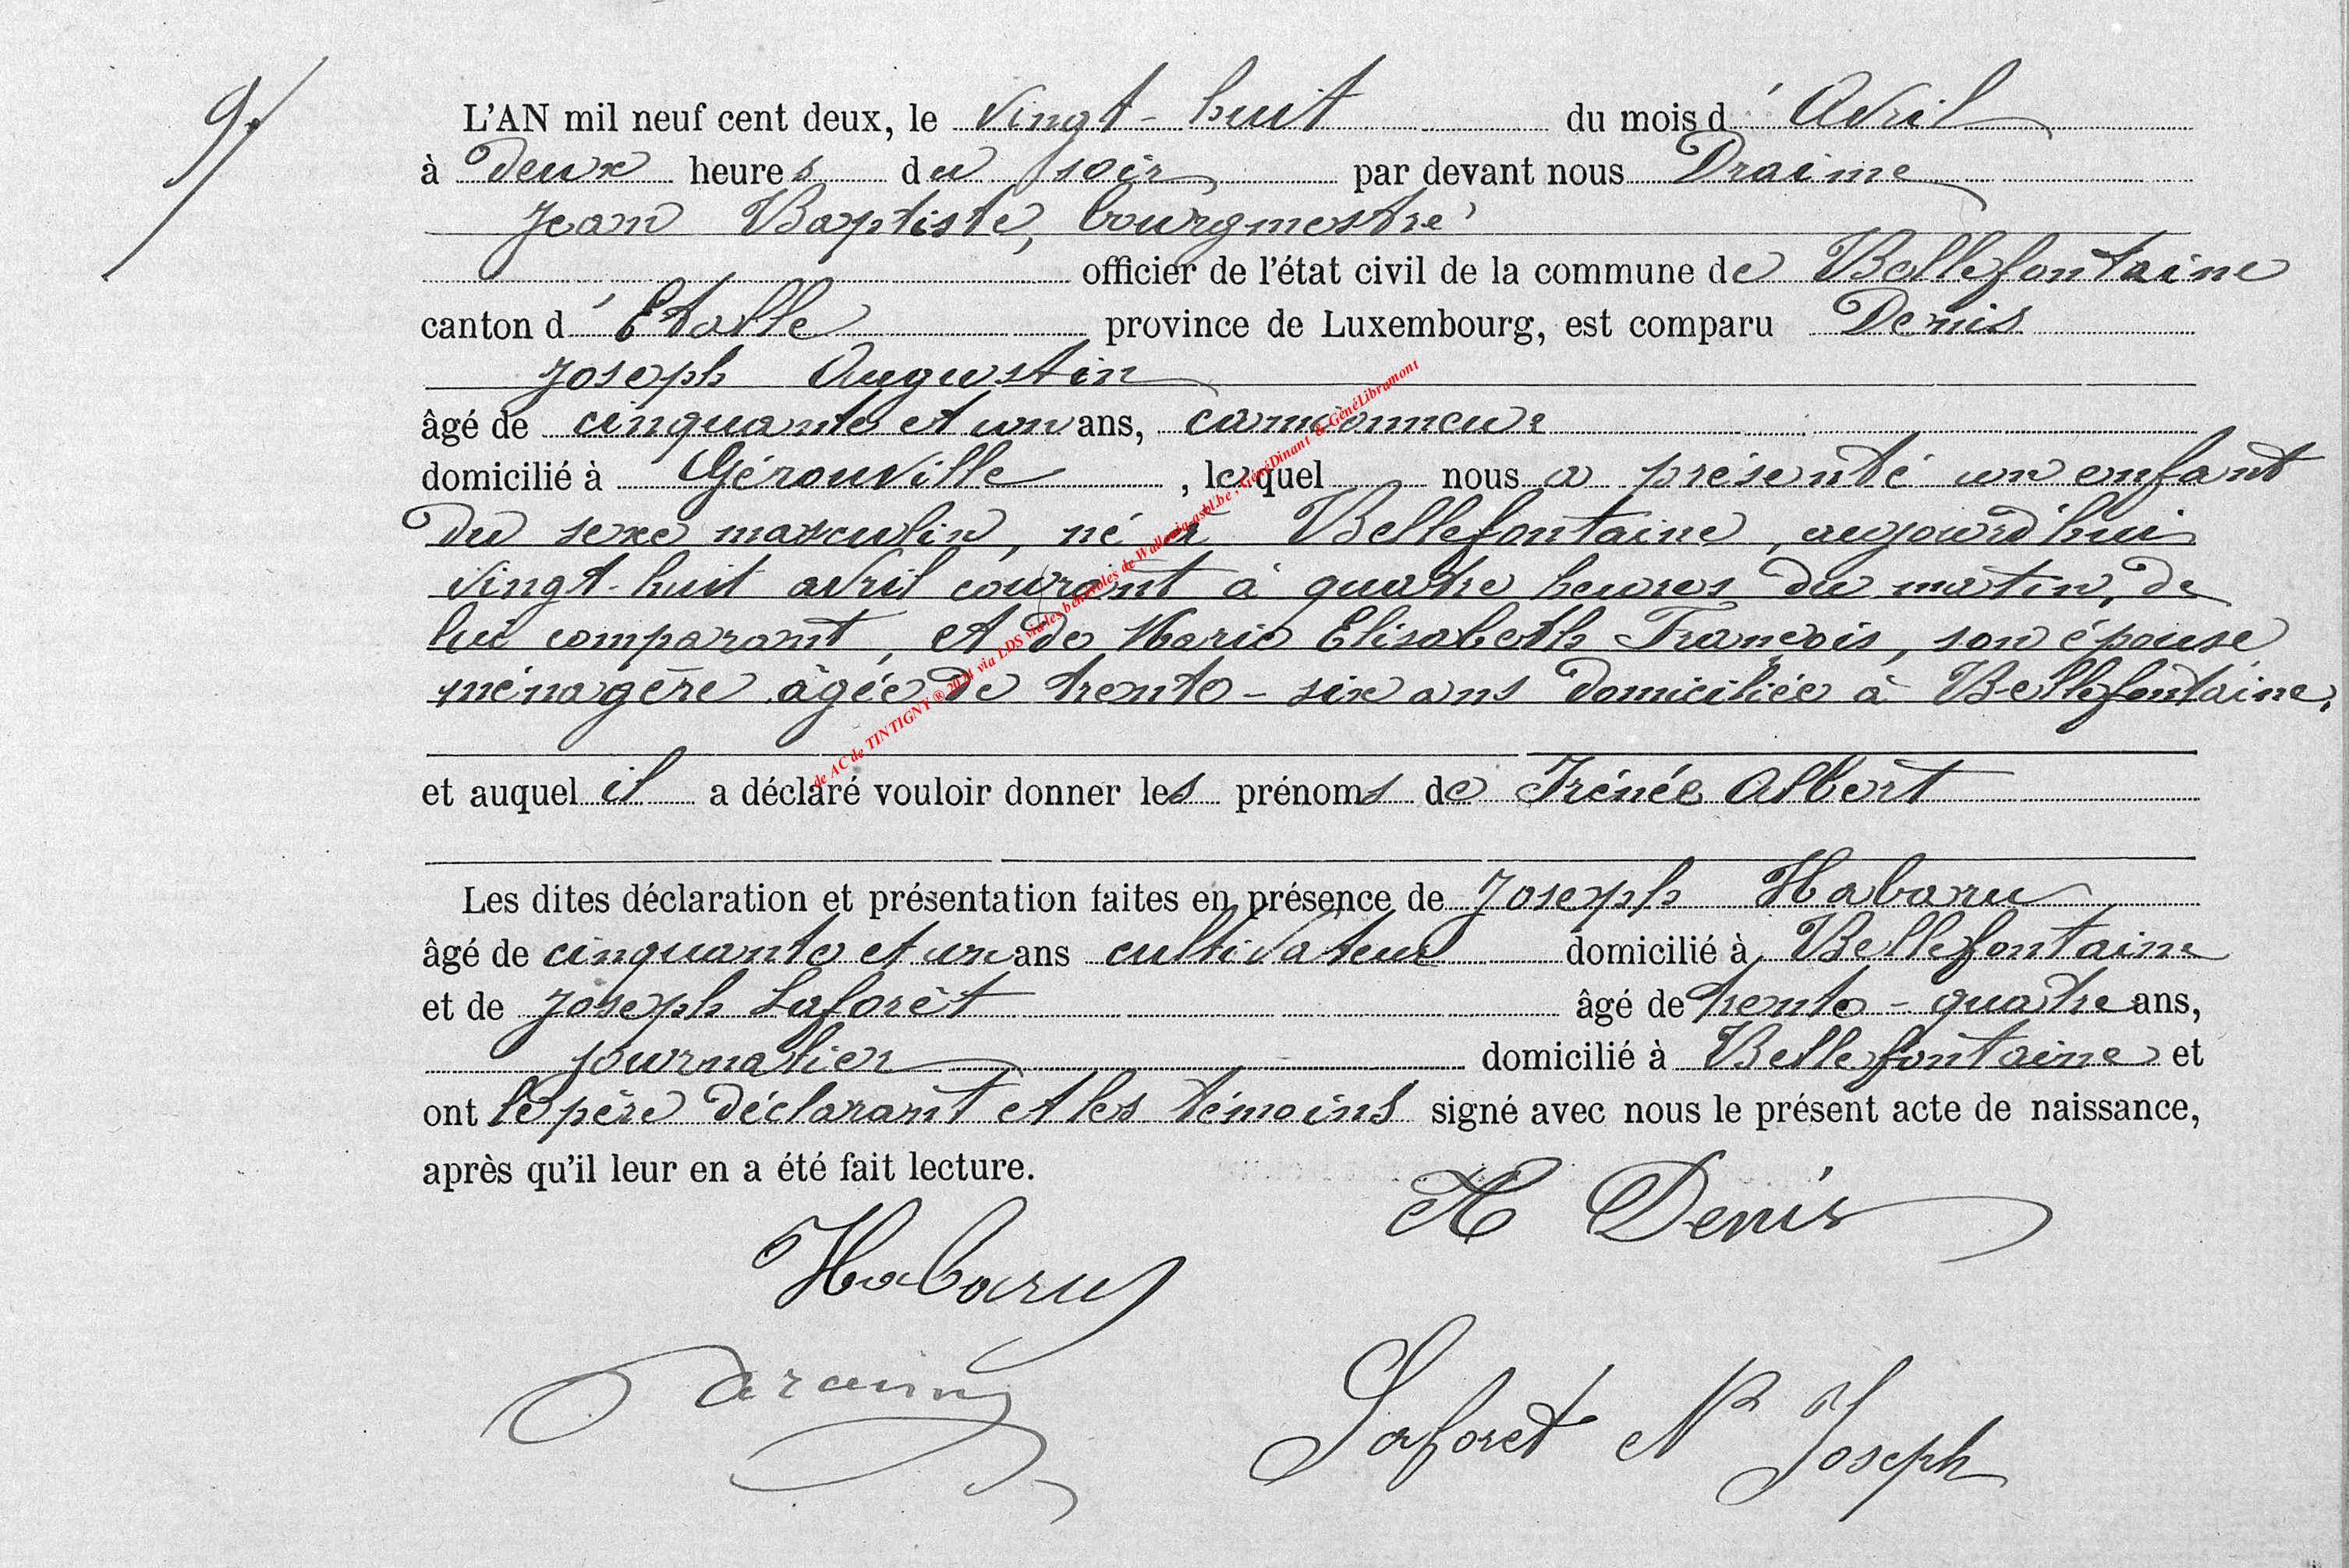 9/
L'AN mil neuf cent deux, le vingt-huit du mois d'Avril
à deux heures du soir par devant nous Draime
Jean Baptiste, bourgmestre
officier de l'état civil de la commune de Bellefontaine
canton d'Etalle province de Luxembourg, est comparu Denis
Joseph Augustin
âgé de cinquante et un ans, camionneur
domicilié à Gérouville, lequel nous a présenté un enfant
du sexe masculin, né à Bellefontaine, aujourd'hui
vingt-huit avril courant à quatre heures du matin, de
lui comparant, et de Marie Elisabeth François, son épouse
ménagère âgée de trente-six ans domiciliée à Bellefontaine,
et auquel il a déclaré vouloir donner les prénoms de Irénée Albert
Les dites déclaration et présentation faites en présence de Joseph Habaru
âgé de cinquante et un ans cultivateur domicilié à Bellefontaine
et de Joseph Laforêt âgé de trente-quatre ans,
journalier domicilié à Bellefontaine et
ont le père déclarant et les témoins signé avec nous le présent acte de naissance,
après qu'il leur en a été fait lecture.
Denis
Habaru
Draime
Laforet Joseph
de AC de TINTIGNY ® 2024 via LDS via les bénévoles de Wallonia-asbl.be , GénéDinant & GénéLibramont